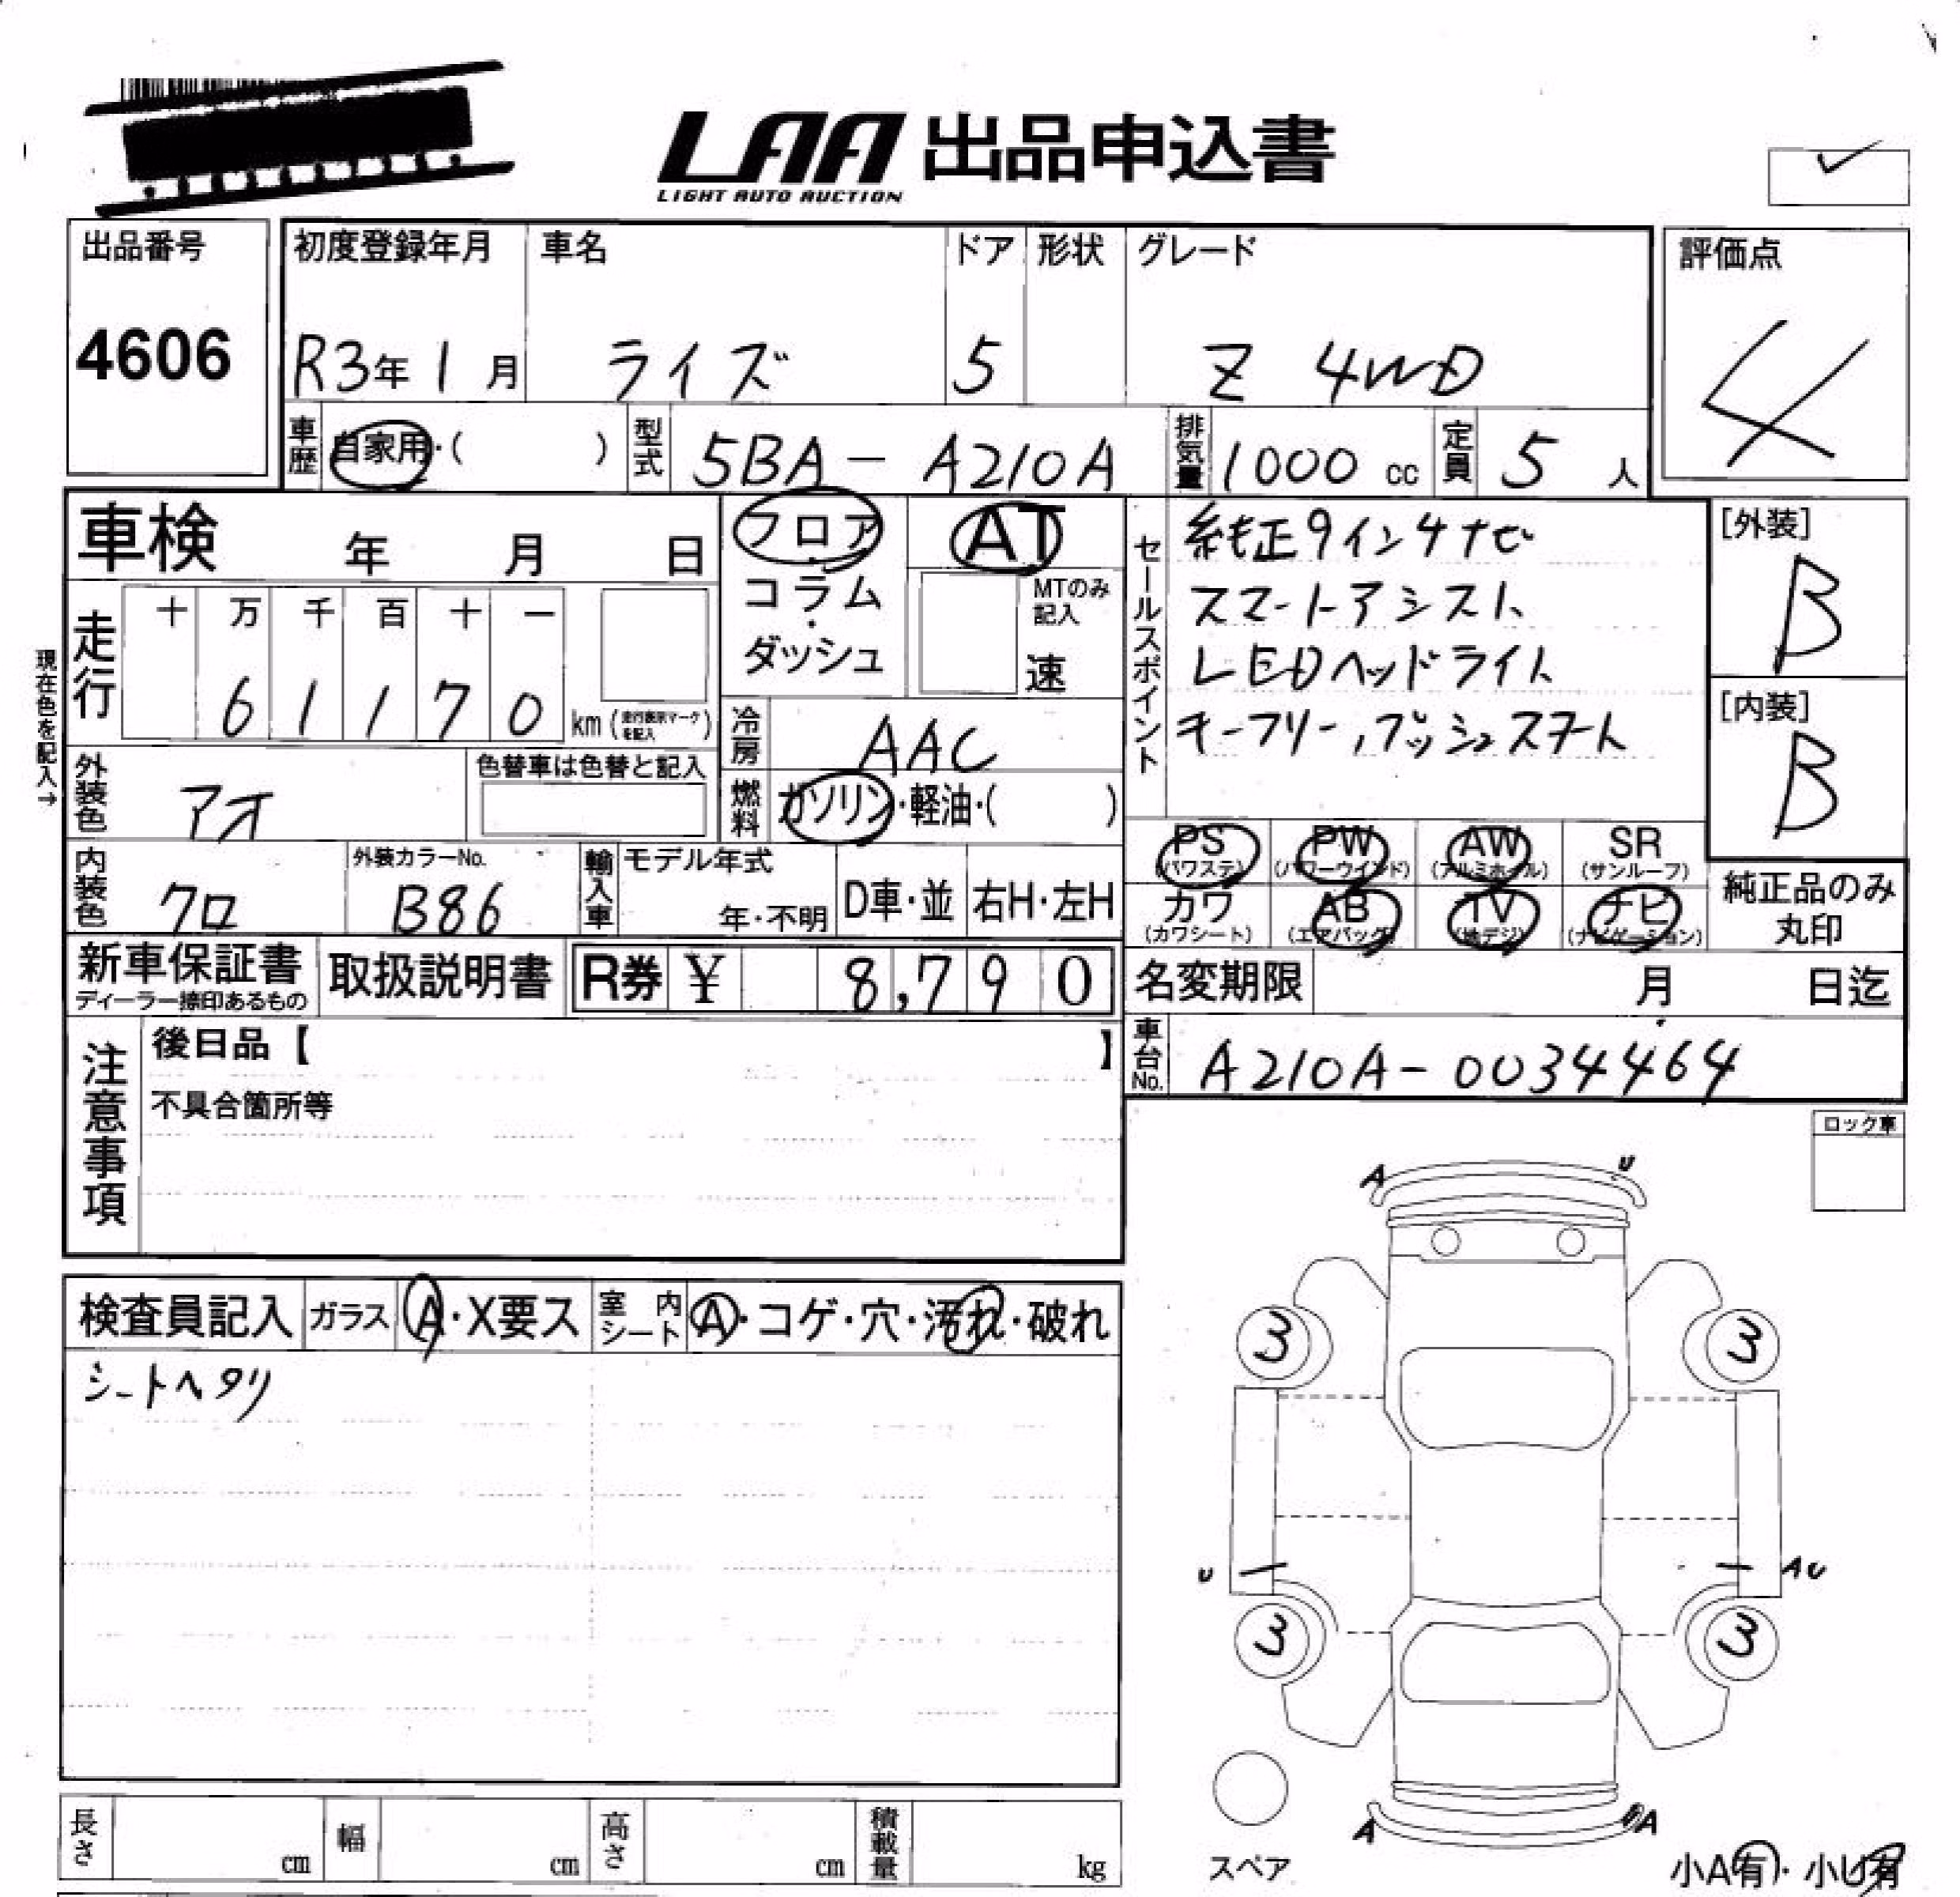 LAA 出品申込書
LIGHT AUTO AUCTION
出品番号
4606
初度登録年月
R3年 1月
車名
ライズ
ドア
5
形状
グレード
Z 4WD
評価点
4
車歴
自家用・( )
型式
5BA - A210A
排気量
1000 cc
定員
5 人
車検 年 月 日
フロア
・
コラム
・
ダッシュ
AT
MTのみ
記入
速
現在色を記入→
走行
十 万 千 百 十 一
6 1 1 7 0 km (走行表示マークを記入)
冷房
AAC
燃料
ガソリン・軽油・( )
外装色
アオ
色替車は色替と記入
内装色
クロ
外装カラーNo.
B86
輸入車
モデル年式
年・不明
D車・並
右H・左H
新車保証書
ディーラー捺印あるもの
取扱説明書
R券 ¥ 8,790
セールスポイント
純正9インチナビ
スマートアシスト
LEDヘッドライト
キーフリー,プッシュスタート
[外装]
B
[内装]
B
PS
(パワステ)
PW
(パワーウインド)
AW
(アルミホイル)
SR
(サンルーフ)
カワ
(カワシート)
AB
(エアバッグ)
TV
(地デジ)
ナビ
(ナビゲーション)
純正品のみ
丸印
名変期限 月 日迄
車台No.
A210A-0034464
注意事項
後日品【 】
不具合箇所等
ロック車
検査員記入
ガラス
A・X要ス
室内シート
A・コゲ・穴・汚れ・破れ
シートヘタリ
A U
3 3
U AU
3 3
A A
スペア
小A有・小U有
長さ cm
幅 cm
高さ cm
積載量 kg